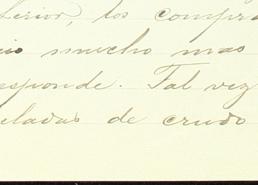 terior, los compra
io mucho mas
esponde. Tal vez
eladas de crudo